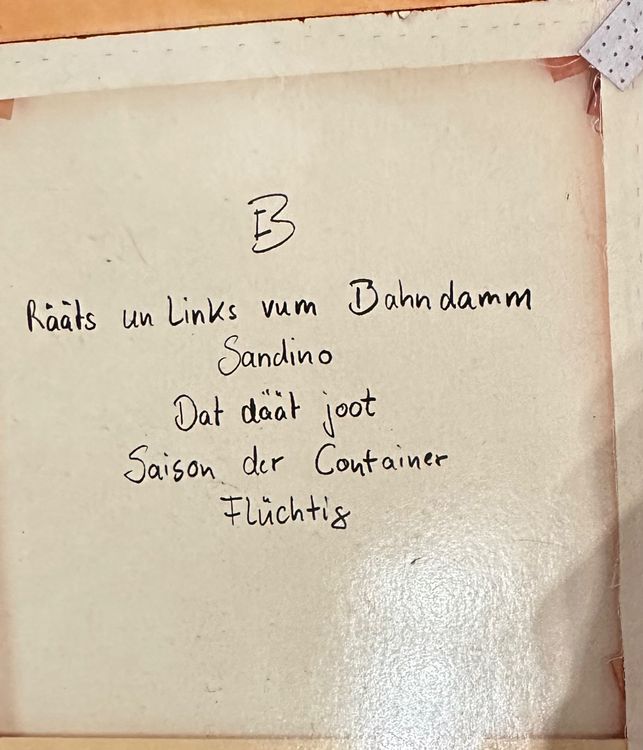 B
Rääts un Links vum Bahndamm
Sandino
Dat däät joot
Saison der Container
Flüchtig